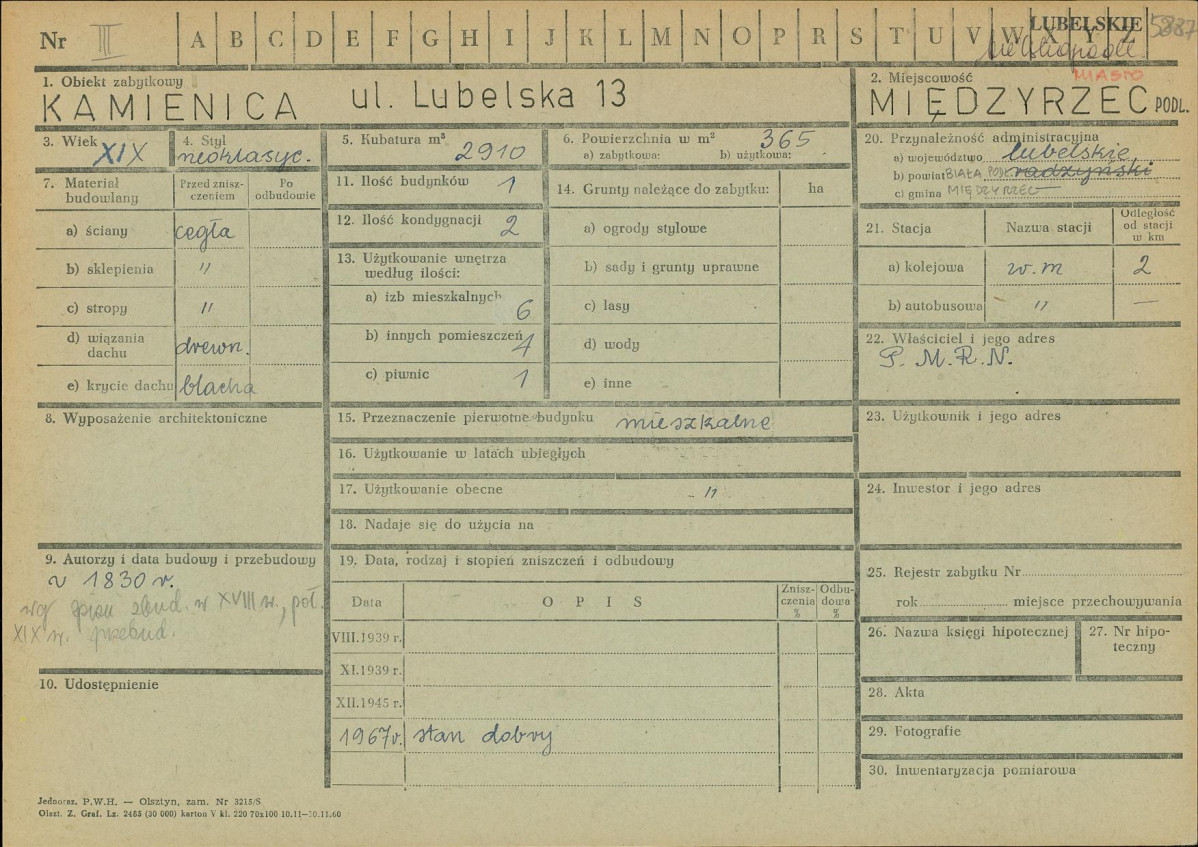 Nr III A B C D E F G H I J K L M N O P R S T U V W X Y Z LUBELSKIE 5887
MIASTO
1. Obiekt zabytkowy
KAMIENICA ul. Lubelska 13
2. Miejscowość
MIĘDZYRZEC PODL.
3. Wiek XIX
4. Styl neoklasyc.
5. Kubatura m³ 2910
6. Powierzchnia w m² 365
a) zabytkowa: b) użytkowa:
7. Materiał budowlany
Przed znisz-
czeniem
Po
odbudowie
a) ściany cegła
b) sklepienia "
c) stropy "
d) wiązania
dachu drewn.
e) krycie dachu blacha
8. Wyposażenie architektoniczne
9. Autorzy i data budowy i przebudowy
1830 r.
wg zbud. w XVIII w., poł.
XIX w. przebud.
10. Udostępnienie
11. Ilość budynków 1
12. Ilość kondygnacji 2
13. Użytkowanie wnętrza
według ilości:
a) izb mieszkalnych 6
b) innych pomieszczeń 4
c) piwnic 1
14. Grunty należące do zabytku: ha
a) ogrody stylowe
b) sady i grunty uprawne
c) lasy
d) wody
e) inne
15. Przeznaczenie pierwotne budynku mieszkalne
16. Użytkowanie w latach ubiegłych
17. Użytkowanie obecne - "
18. Nadaje się do użycia na
19. Data, rodzaj i stopień zniszczeń i odbudowy
Data O P I S
Znisz-
czenia
%
Odbu-
dowa
%
VIII.1939 r.
XI.1939 r.
XII.1945 r.
1967 r. stan dobry
20. Przynależność administracyjna
a) województwo lubelskie
b) powiat BIAŁA PODL. radzyński
c) gmina MIĘDZYRZEC
21. Stacja Nazwa stacji
Odległość
od stacji
w km
a) kolejowa w.m 2
b) autobusowa " —
22. Właściciel i jego adres
P. M. R. N.
23. Użytkownik i jego adres
24. Inwestor i jego adres
25. Rejestr zabytku Nr
rok miejsce przechowywania
26. Nazwa księgi hipotecznej
27. Nr hipo-
teczny
28. Akta
29. Fotografie
30. Inwentaryzacja pomiarowa
Jednoraz. P.W.H. — Olsztyn, zam. Nr 3215/S
Olszt. Z. Graf. Lz. 2485 (30 000) karton V kl. 220 70x100 10.11—30.11.60